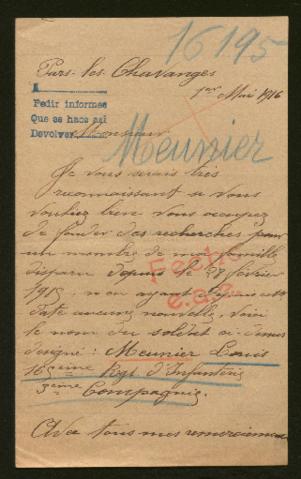 16195
Pars-les-Chavanges
1er Mai 1916
Pedir informes
Que se hace asi
Devolver
Monsieur
Meunier
Je vous serais très
reconnaissant si vous
vouliez bien vous occuper
de fonder des recherches pour
un membre de ma famille
disparu depuis le 28 février
1915, n'en ayant depuis cette
date aucune nouvelle, voici
le nom du soldat ci-dessus
désigné : Meunier Louis
16 ème Regt d'Infanterie
3ème Compagnie.
Avec tous mes remerciements